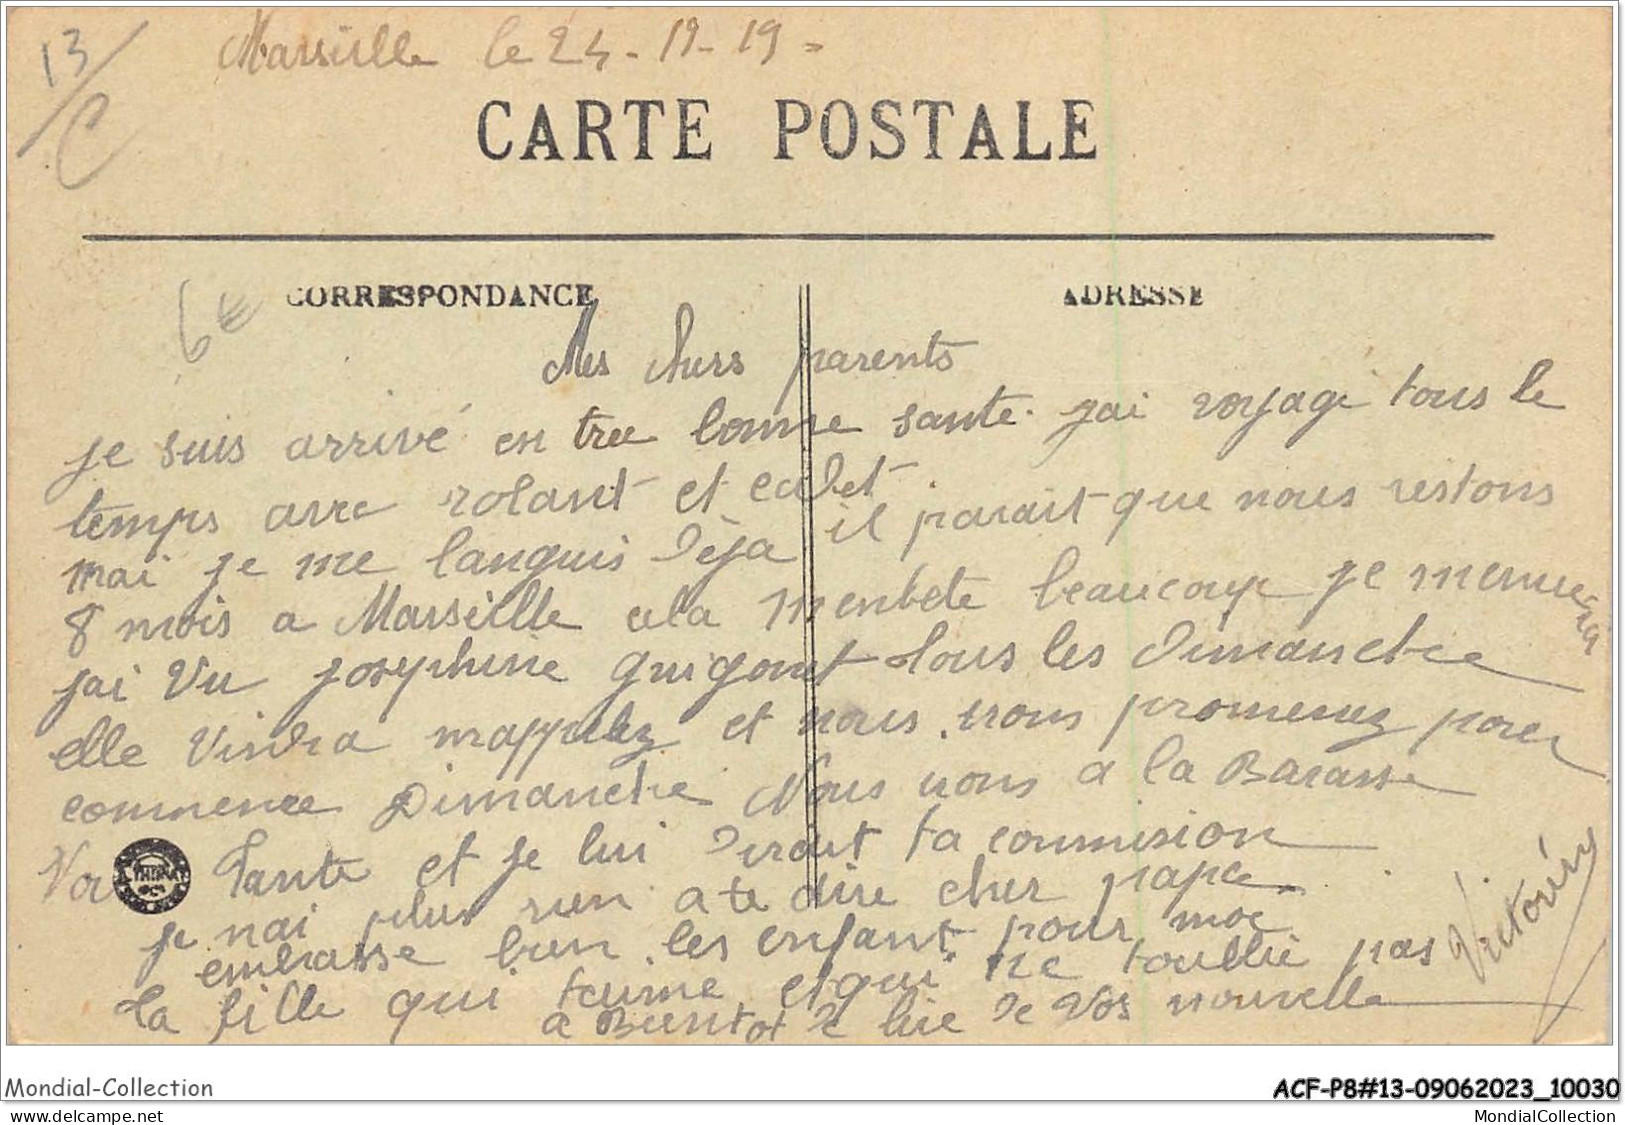 13/C
Marseille le 24-12-19-
CARTE POSTALE
CORRESPONDANCE
ADRESSE
6€
Mes chers parents
je suis arrivé en tree bonne sante. jai voyagé tous le
temps avec rolant et cadet
mai je me languis déja il parait que nous restons
8 mois a Marseille cela menbete beaucoup je mennuera
jai Vu josephine guigonet tous les dimanche
elle Vindra mappelez et nous nous promenez pour
commence Dimanche Nous nons a la Barasse
Voir Tante et je lui dirait ta commision
je nai plus rien a te dire cher papa
embrasse bien les enfant pour moi
la fille qui taime et qui ne toublie pas
a Bientot de lire de Vos nouvelle
Victorin
Mondial-Collection
ACF-P8#13-09062023_10030
www.delcampe.net
MondialCollection